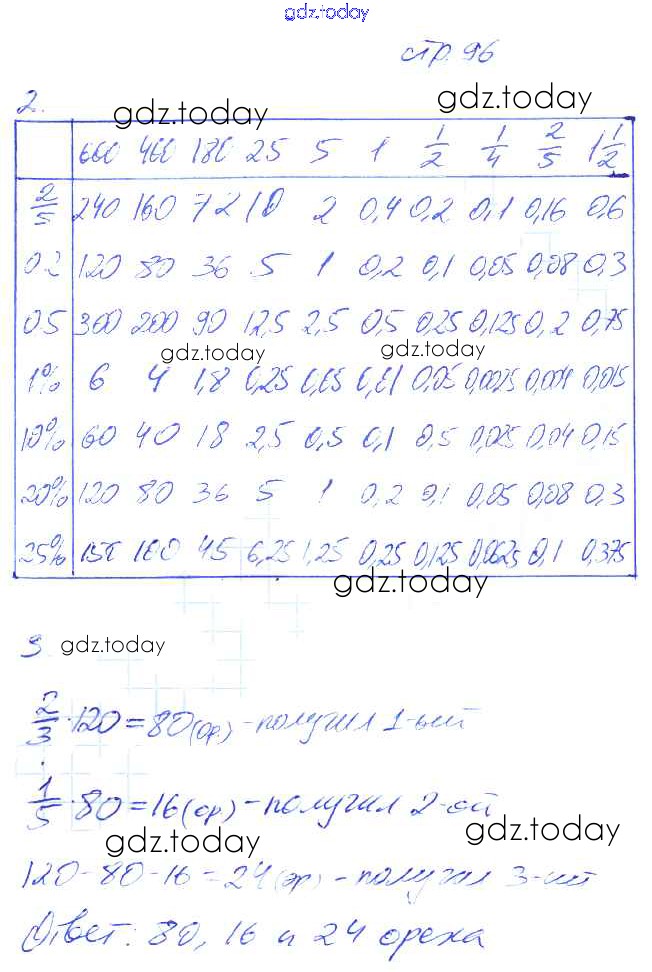 gdz.today
стр. 96
2.
gdz.today gdz.today
600 400 180 25 5 1 1/2 1/4 2/5 1 1/2
2/5 240 160 72 10 2 0,4 0,2 0,1 0,16 0,6
0.2 120 80 36 5 1 0,2 0,1 0,05 0,08 0,3
0.5 300 200 90 12,5 2,5 0,5 0,25 0,125 0,2 0,75
gdz.today gdz.today
1% 6 4 1,8 0,25 0,05 0,01 0,05 0,0025 0,004 0,015
10% 60 40 18 2,5 0,5 0,1 0,5 0,025 0,04 0,15
20% 120 80 36 5 1 0,2 0,1 0,05 0,08 0,3
25% 150 100 45 6,25 1,25 0,25 0,125 0,0625 0,1 0,375
gdz.today
3 gdz.today
2/3 · 120 = 80 (ор.) - получил 1-ый
1/5 · 80 = 16 (ор.) - получил 2-ой
gdz.today gdz.today
120 - 80 - 16 = 24 (ор) - получил 3-ий
Ответ: 80, 16 и 24 ореха